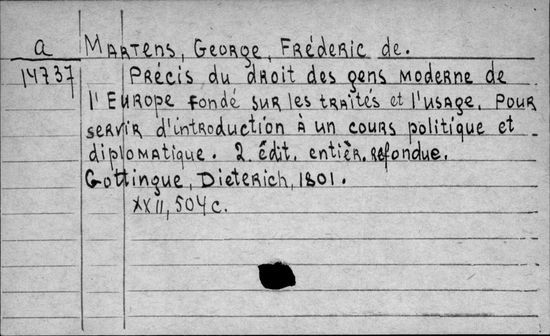 a
14737
Martens, George, Fréderic de.
Précis du droit des gens moderne de
l'Europe fondé sur les traités et l'usage. Pour
servir d'introduction à un cours politique et
diplomatique. 2. édit. entièr. refondue.
Gottingue, Dieterich, 1801.
XXII, 504 c.